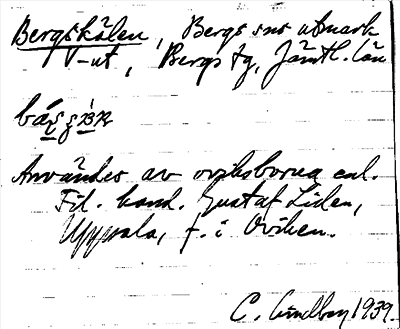 Bergskälen, Bergs sns utmark
V-ut, Bergs tg, Jämtl. län
Användes av oviksborna enl.
Fil. kand. Gustaf Lidén,
Uppsala, f. i Oviken.
C. Lindberg 1939.